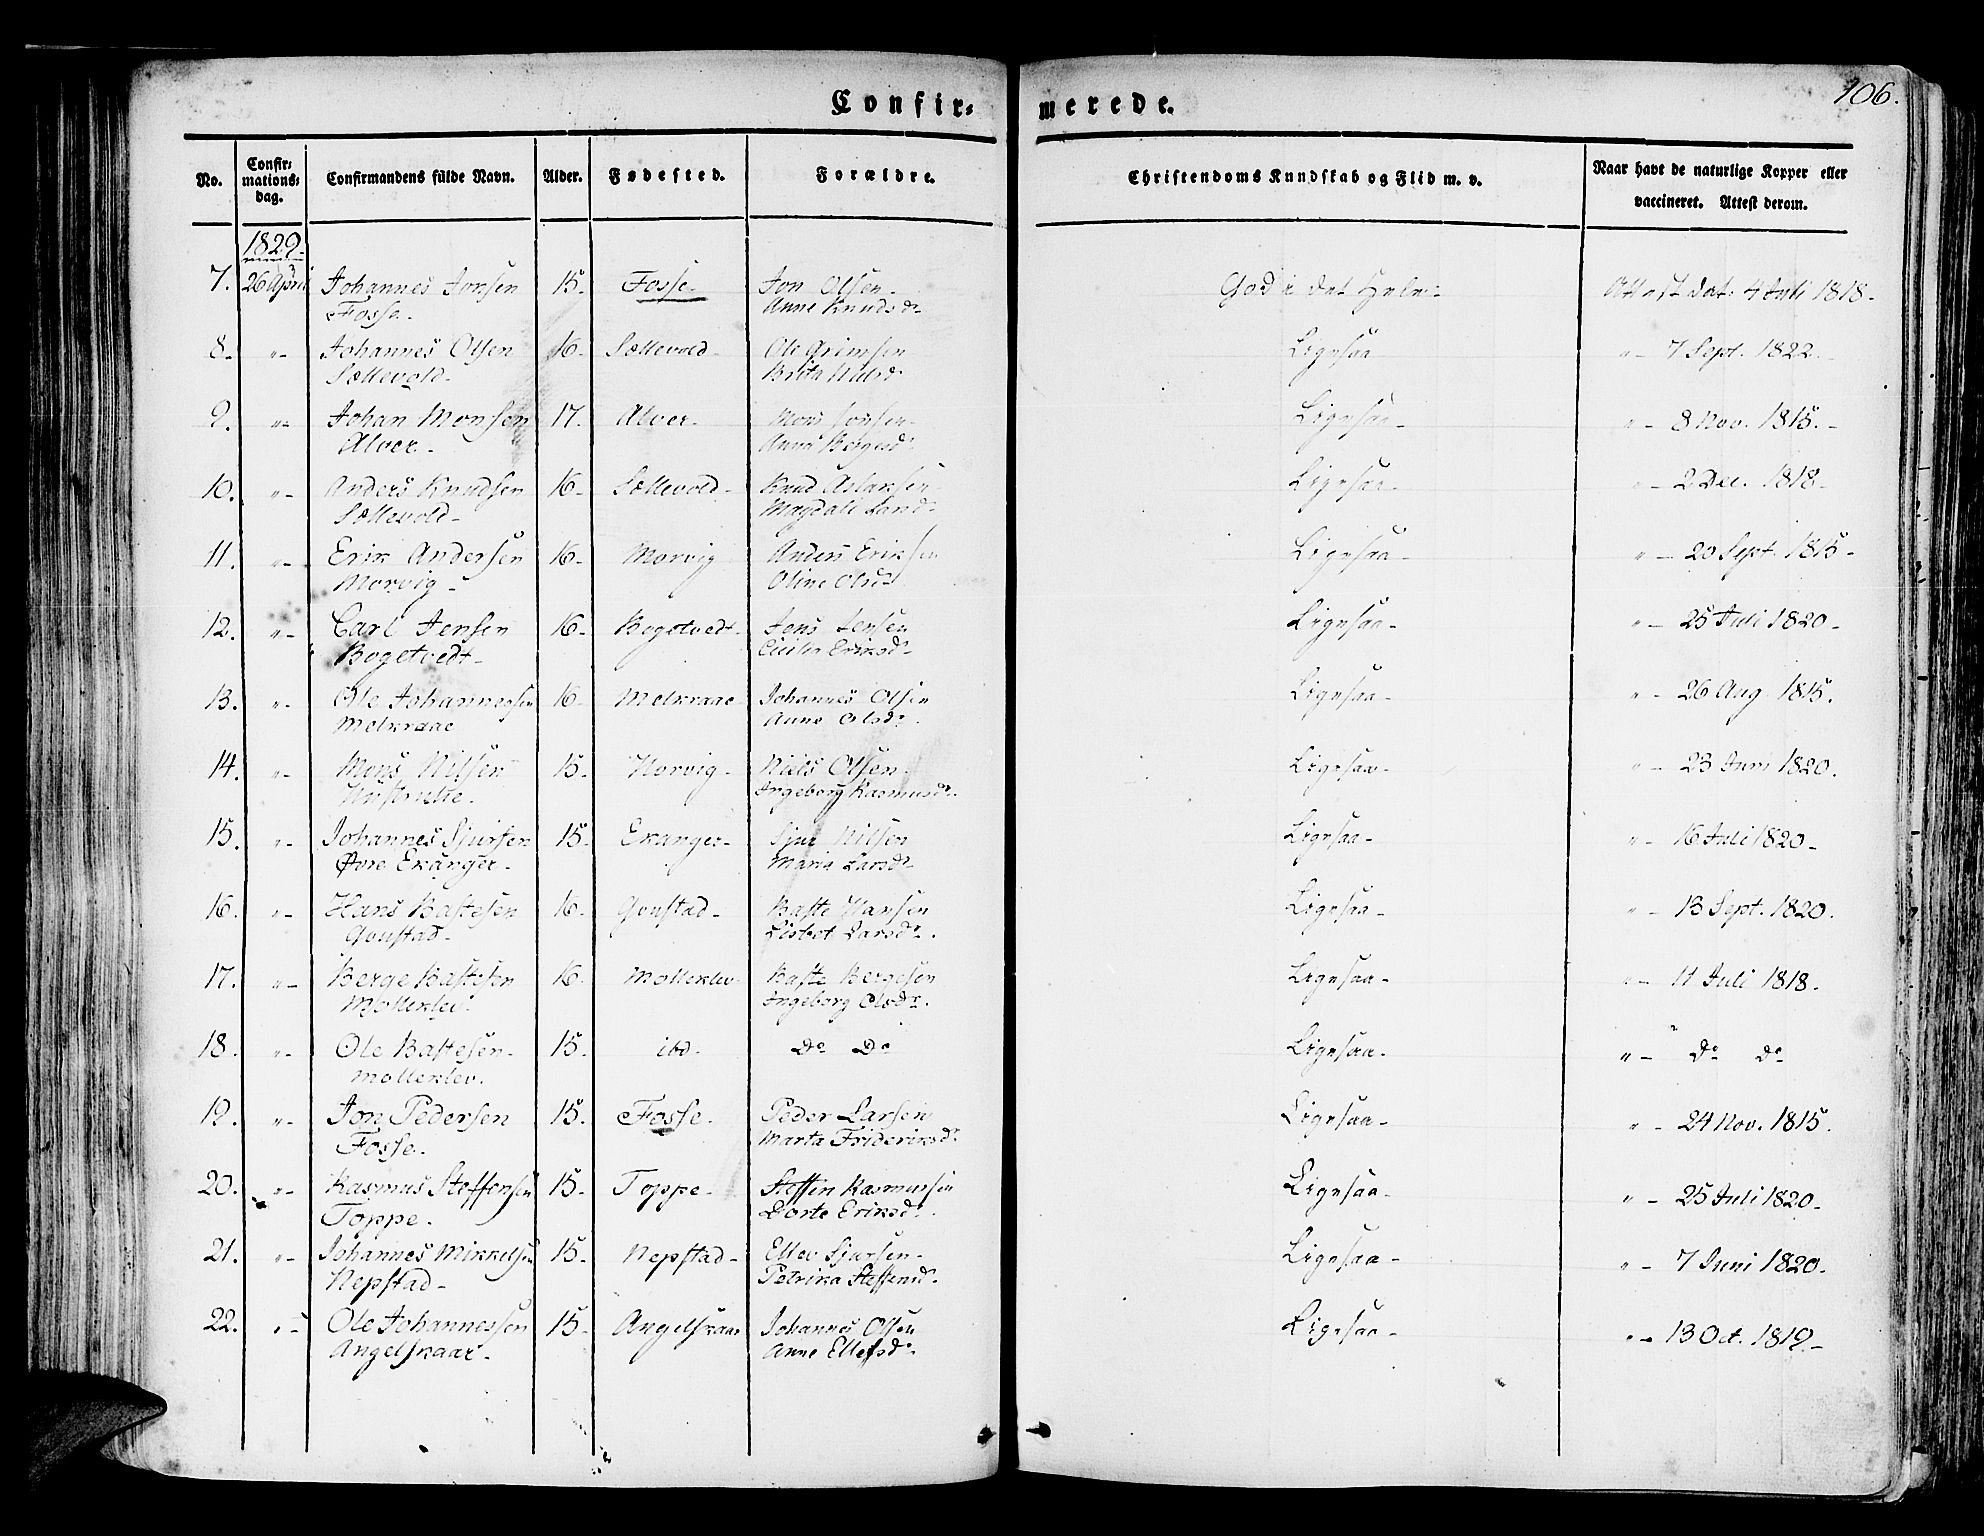 106.
Confir= merede.
No. Confir=mations=dag. Confirmandens fulde Navn. Alder. Fødested. Forældre. Christendoms Kundskab og Flid m. v. Naar havt de naturlige Kopper eller vaccineret. Attest derom.
1829
7. 26 April Johannes Jonsen 15. Fosse. Jon Olsen. God i det Hele. Attest dat. 4 Juli 1818.
Fosse. Anne Knudsdr
8. "- Johannes Olsen 16. Sællevold. Ole Grimsen Ligesaa "- 7 Sept. 1822.
Sællevold. Brita Nilsdr
9. "- Johan Monsen 17. Alver. Mons Jonsen. Ligesaa- "- 8 Nov. 1815.-
Alver. Anna Bergesdr
10. "- Anders Knudsen 16. Sællevold- Knud Aslaksen Ligesaa- "- 2 Dec. 1818-
Sællevold- Magdali Land
11. "- Erik Andersen 16. Morvig Anders Eriksen Ligesaa- "- 20 Sept. 1815-
Morvig- Oline Olsdr
12. "- Carl Jensen 16. Bogetvedt- Jens Jensen Ligesaa- "- 25 Juli 1820-
Bogetvedt- Cicilia Eriksdr
13. "- Ole Johannessen 16 Melkraae Johannes Olsen Ligesaa- "- 26 Aug. 1815.
Melkraae Anne Olsdr.
14. "- Mons Nilsen 15. Horvig- Niels Olsen- Ligesaa- "- 23 Juni 1820.
Ingeborg Rasmusdr.
15. "- Johannes Sjursen 15. Ekanger- Sjur Nilsen Ligesaa- "- 16 Juli 1820-
Øvre Ekanger- Maria Larsdr
16. "- Hans Bastesen 16. Gonstad- Baste Hansen Ligesaa- "- 13 Sept. 1820.
Gonstad- Lisbet Larsdr.
17. "- Berge Bastesen 16. Molleklev Baste Bergesen Ligesaa- "- 11 Juli 1818.
Molleklev. Ingeborg Olsdr.
18. "- Ole Bastesen- 15. ibd- Do Do Ligesaa- "- do do
Molleklev.
19. "- Jon Pedersen 15. Fosse. Peder Larsen Ligesaa- "- 24 Nov. 1815.
Fosse. Marta Frideriksdr
20. "- Rasmus Steffensen 15. Toppe- Steffen Rasmussen Ligesaa- "- 25 Juli 1820-
Toppe. Dorte Eriksdr.
21. "- Johannes Mikkelsen 15. Nepstad- Ellev Sjursen- Ligesaa- "- 7 Juni 1820-
Nepstad- Petrika Steffensdr.
22. "- Ole Johannessen 15. Angelskaar Johannes Olsen Ligesaa- "- 13 Oct. 1819-
Angelskaar- Anne Ellefsdr